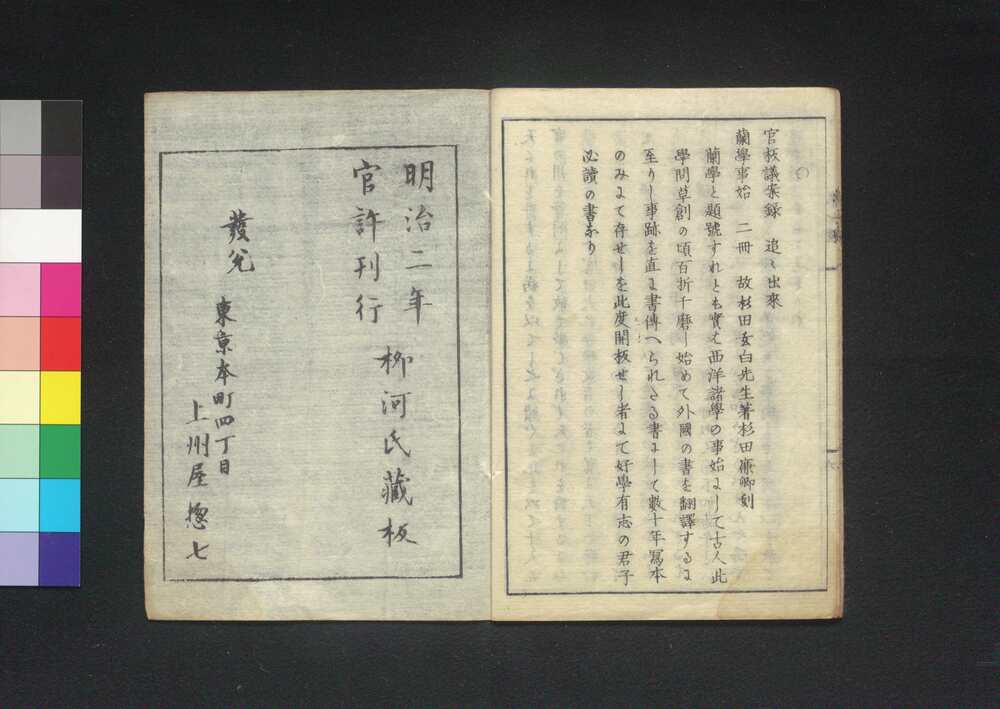 官板議案録　追〻出來
蘭學事始　二冊　故杉田玄白先生著杉田廉卿刻
蘭學と題號すれとも實は西洋諸學の事始にして古人此
學問草創の頃百折千磨し始めて外國の書を翻譯するに
至りし事跡を直に書傳へられたる書にして數十年寫本
のみにて存せしを此度開板せし者にて好學有志の君子
必讀の書なり
明治二年
官許刊行
柳河氏藏板
發兌
東京本町四丁目
上州屋惣七